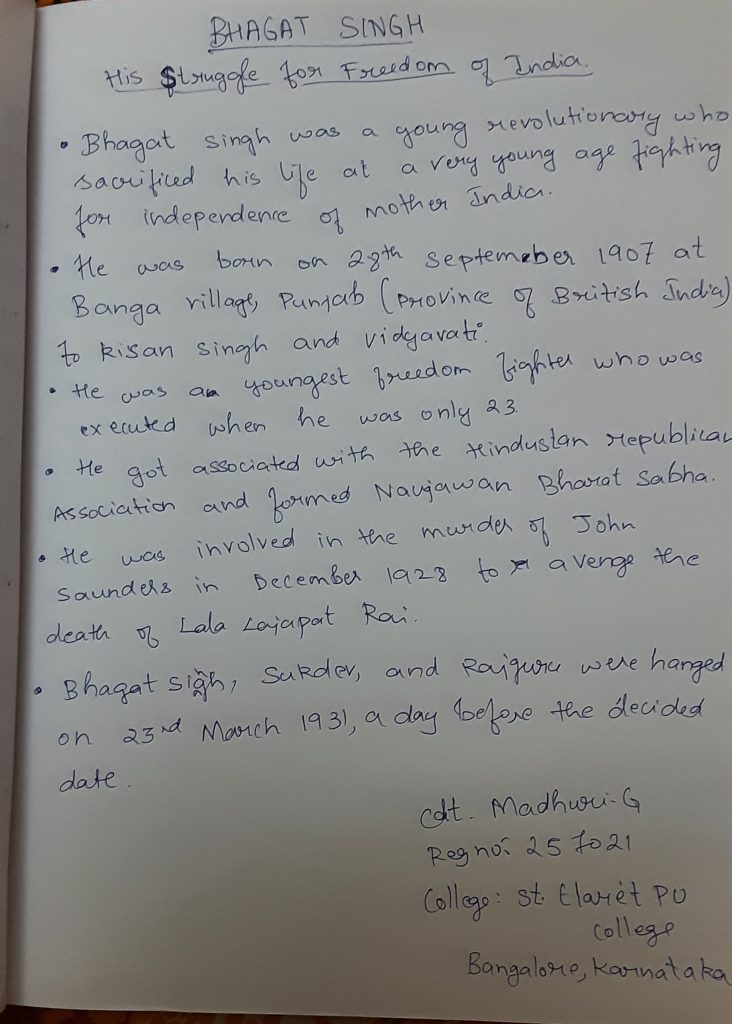 BHAGAT SINGH
His Struggle for Freedom of India.
• Bhagat singh was a young revolutionary who
sacrificed his life at a very young age fighting
for independence of mother India.
• He was born on 28th September 1907 at
Banga village, Punjab (Province of British India)
to Kisan singh and vidyavati.
• He was a youngest freedom fighter who was
executed when he was only 23.
• He got associated with the Hindustan republican
Association and formed Naujawan Bharat Sabha.
• He was involved in the murder of John
Saunders in December 1928 to avenge the
death of Lala Lajapat Rai.
• Bhagat singh, Sukdev, and Rajguru were hanged
on 23rd March 1931, a day before the decided
date.
Cdt. Madhuri-G
Reg no: 257021
College: St. Claret PU
College
Bangalore, Karnataka